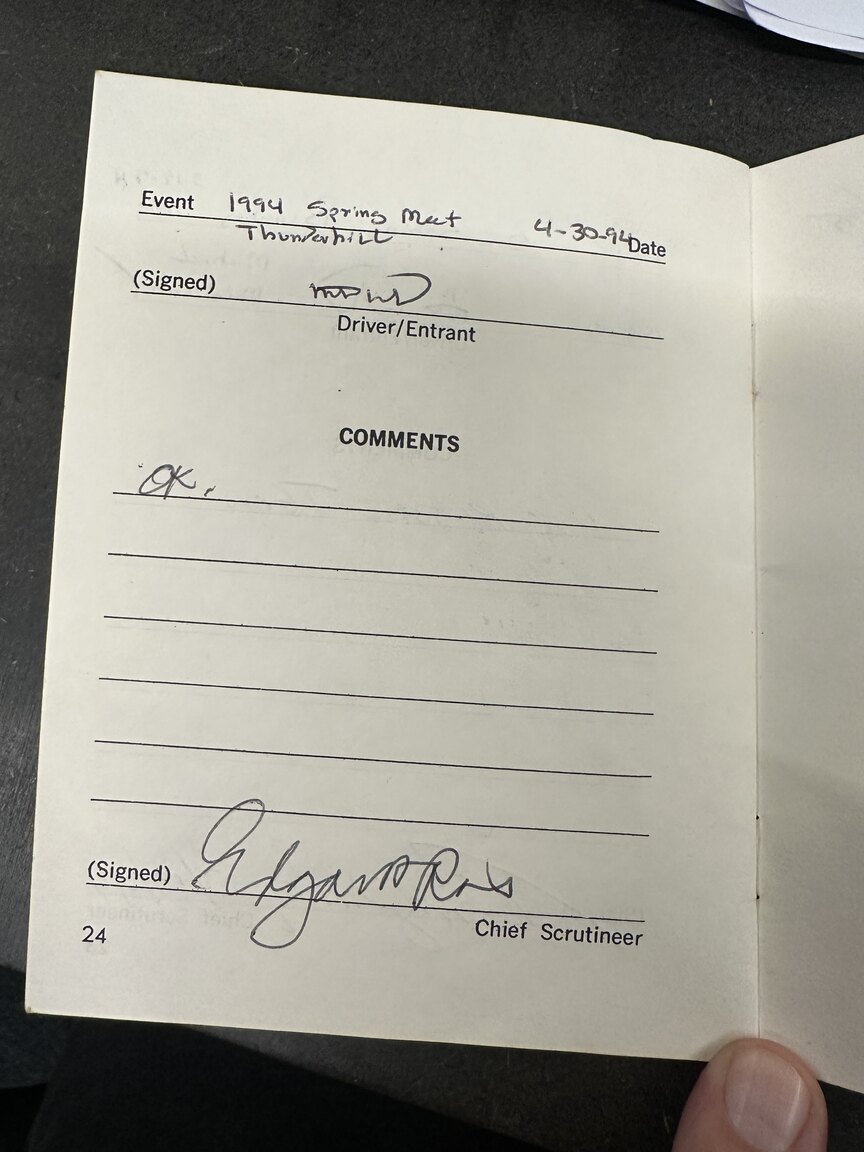 Event 1994 Spring Meet 4-30-94 Date
Thunderhill
(Signed)
Driver/Entrant
COMMENTS
OK.
(Signed) Edgar
Chief Scrutineer
24